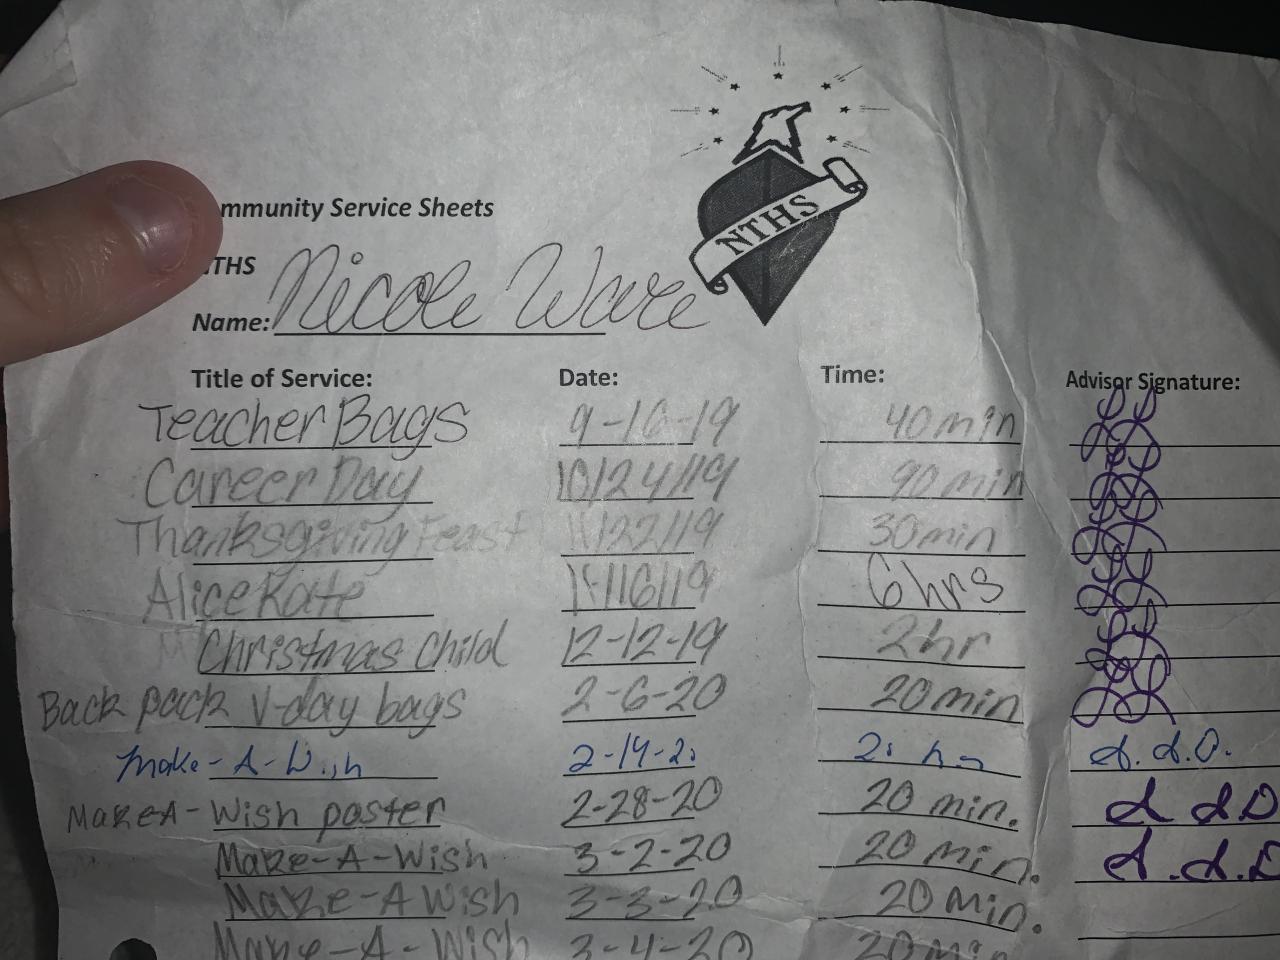 NTHS
mmunity Service Sheets
THS
Name: Nicole Ware
Title of Service: Date: Time: Advisor Signature:
Teacher Bags 9-16-19 40 min
Career Day 10/24/19 90 min
Thanksgiving Feast 11/22/19 30 min
Alice Kate 11/16/19 6 hrs
Christmas Child 12-12-19 2 hr
Back pack V-day bags 2-6-20 20 min
Make-A-Wish 2-14-2
Make A-Wish poster 2-28-20 20 min.
Make-A-Wish 3-2-20 20 min.
Make-A Wish 3-3-20 20 Min.
Make-A-Wish 3-4-20 20 Min